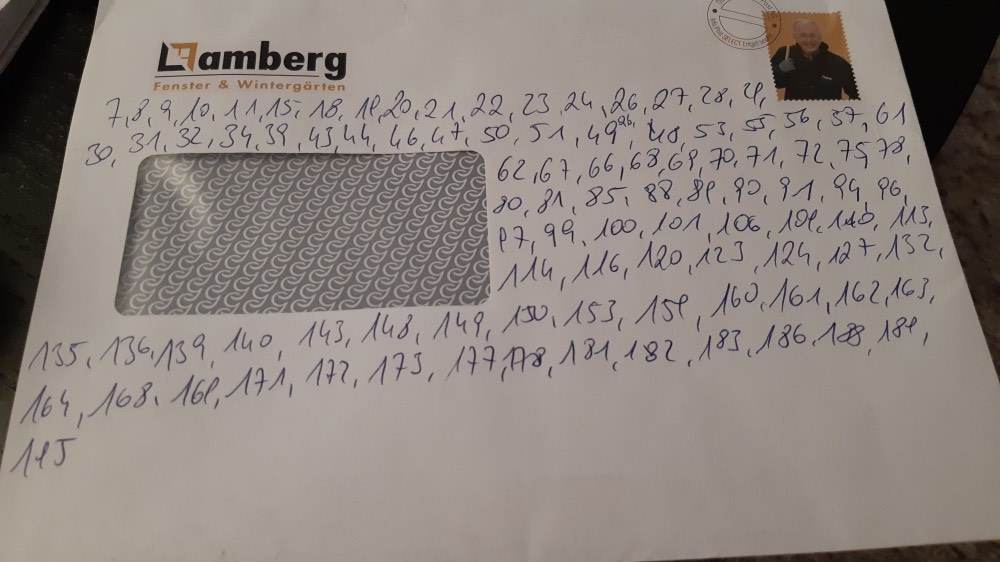 amberg
Fenster & Wintergärten
7, 8, 9, 10, 11, 15, 18, 19, 20, 21, 22, 23, 24, 26, 27, 28, 29,
30, 31, 32, 34, 39, 43, 44, 46, 47, 50, 51, 49, 48, 53, 55, 56, 57, 61
62, 67, 66, 68, 69, 70, 71, 72, 75, 78,
80, 81, 85, 88, 89, 90, 91, 94, 96,
97, 99, 100, 101, 106, 109, 110, 113,
114, 116, 120, 123, 124, 127, 132,
135, 136, 139, 140, 143, 148, 149, 150, 153, 159, 160, 161, 162, 163,
164, 168, 169, 171, 172, 173, 177, 178, 181, 182, 183, 186, 188, 189,
195